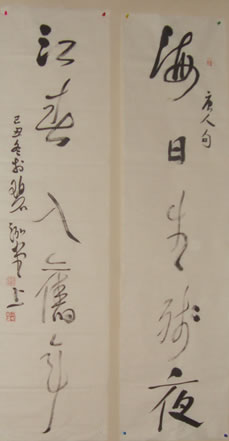 海日生殘夜
唐人句
江春入舊年
己丑冬於